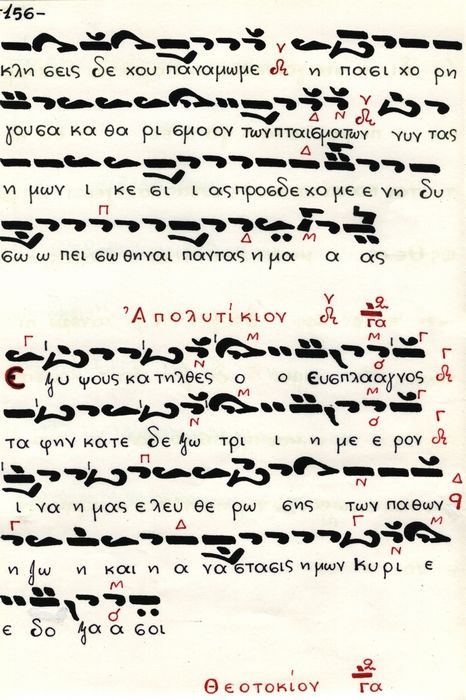 -156-
κλη σεις δε χου παναμωμε η πασι χο ρη
γουσα κα θα ρι σμο ον των πταισματων νυν τας
η μων ι κε σι ι ας προσδε χο με ε νη δυ
σω ω πει σω θηναι παντας η μα α ας
Ἀπολυτίκιον γα
Ε ξυ ψους κα τηλθες ο ευσπλααγνος
τα φην κατε δε ξω τρι ι η με ε ρον
ι να η μας ε λευ θε ρω σης των παθων
η ζω η και η α να στασις η μων Κυρι ε
ε δο ξα α σοι
Θεοτοκίον γα